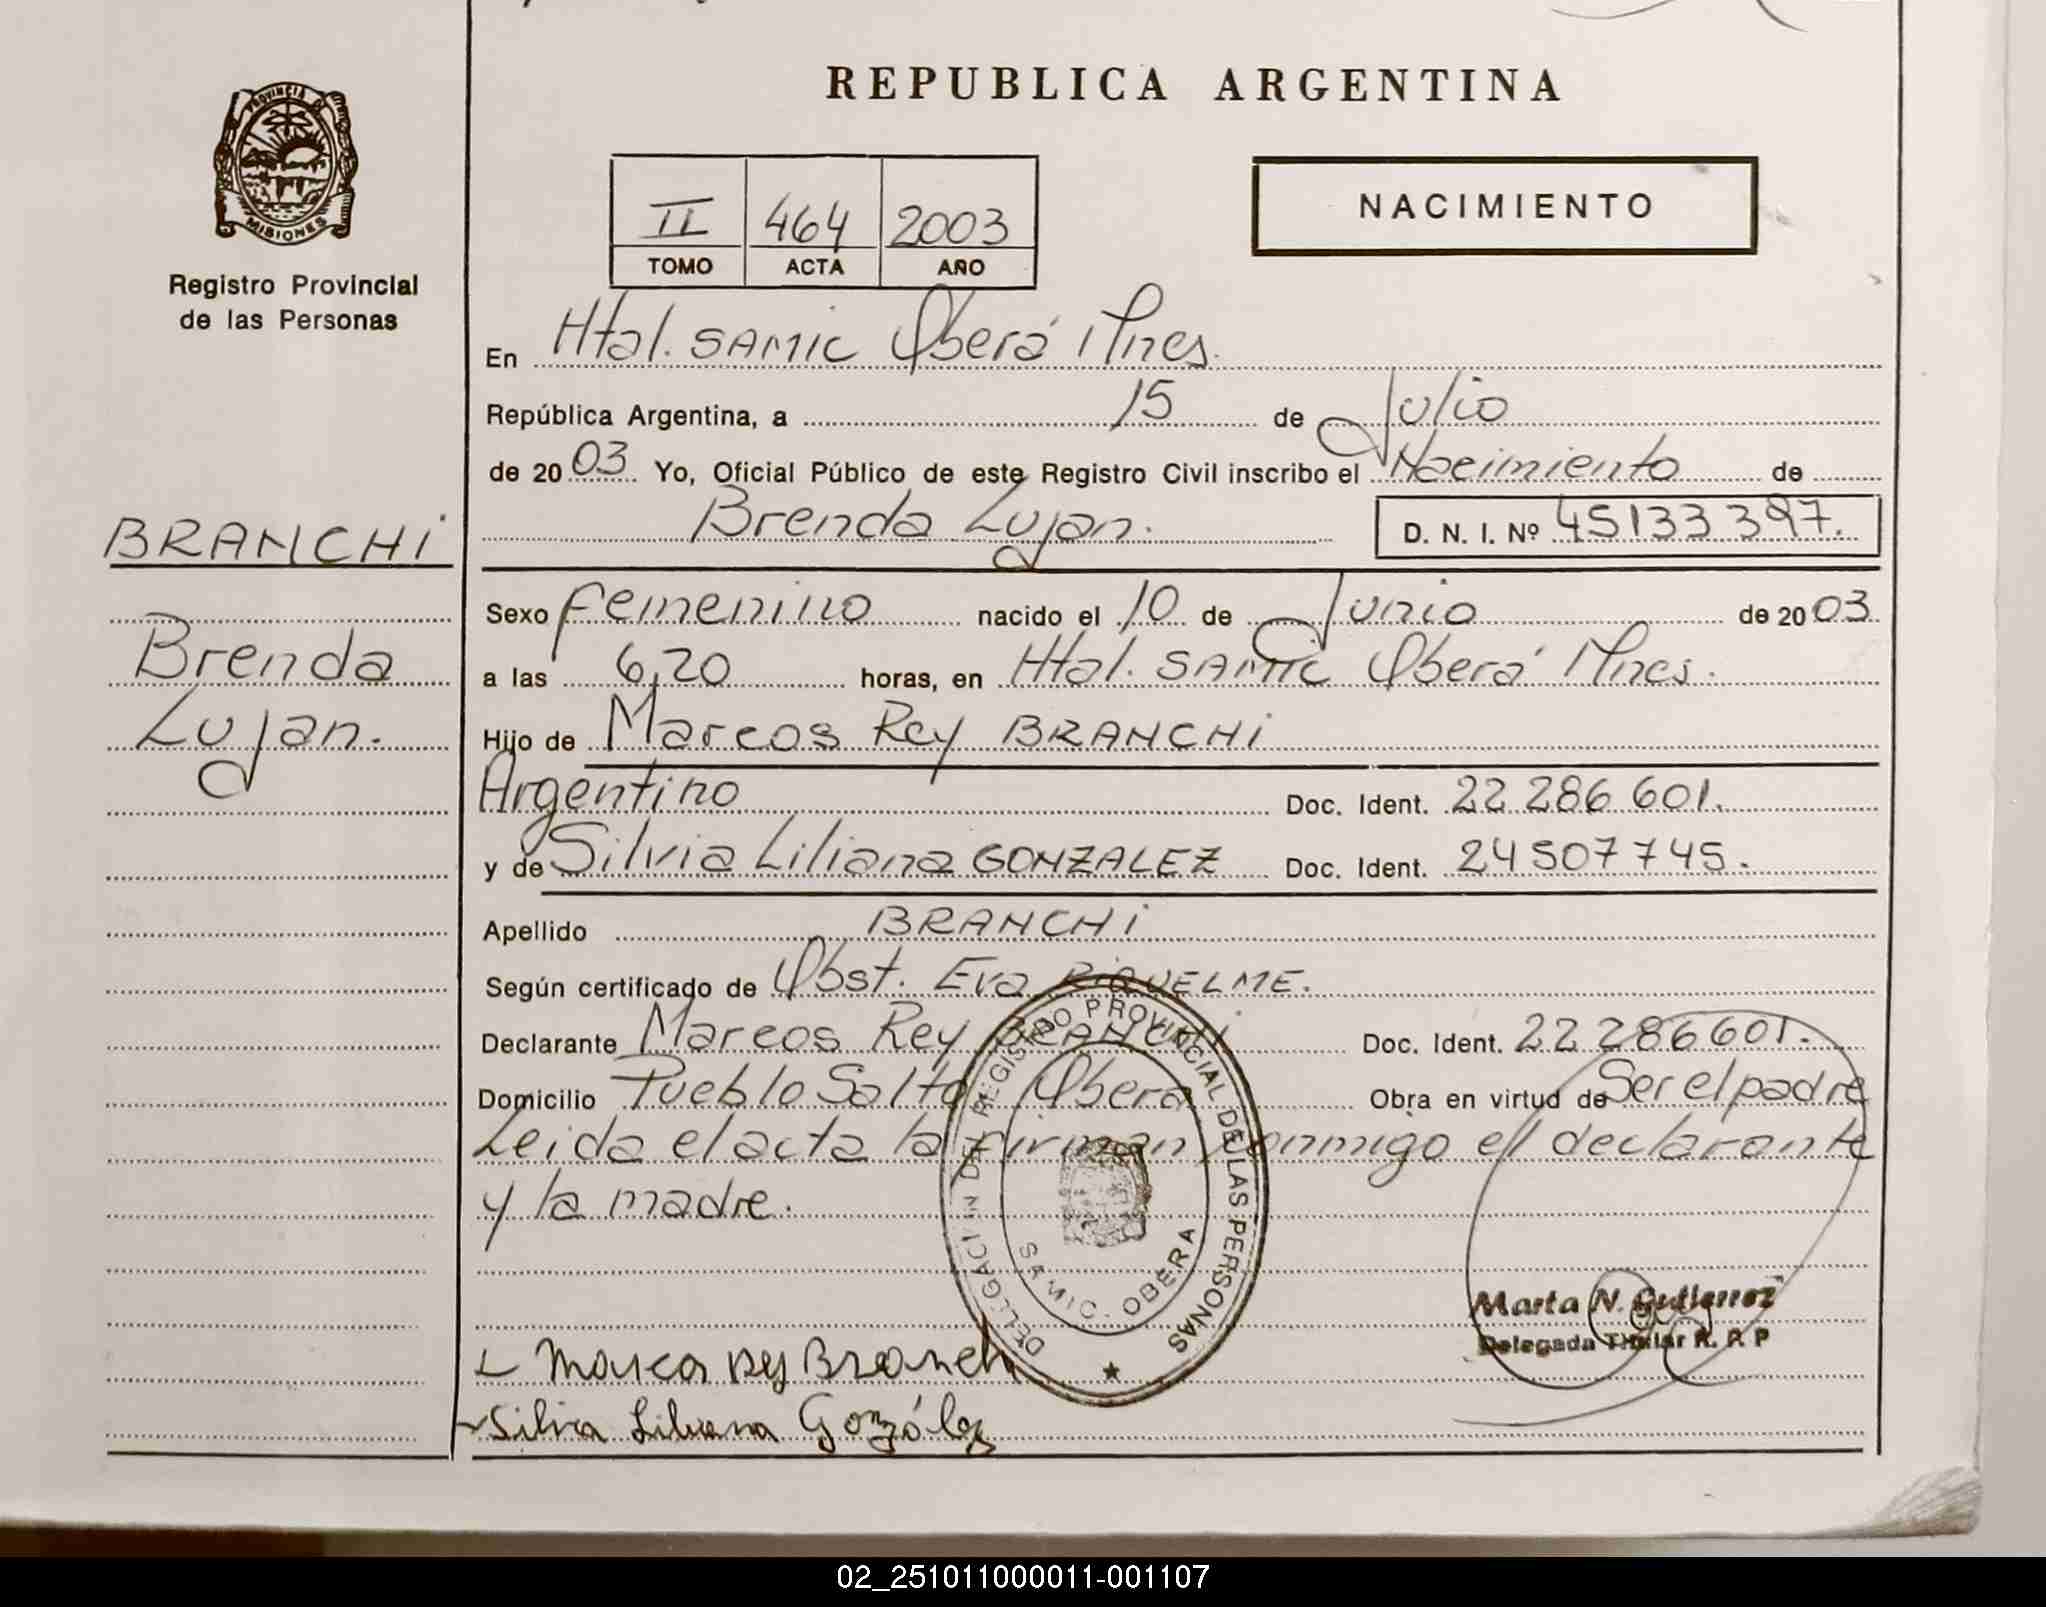 REPUBLICA ARGENTINA
PROVINCIA DE MISIONES
Registro Provincial
de las Personas
II 464 2003
TOMO ACTA AÑO
NACIMIENTO
En Htal. SAMIC Oberá Mnes.
República Argentina, a 15 de Julio
de 2003 Yo, Oficial Público de este Registro Civil inscribo el Nacimiento de
Brenda Lujan. D. N. I. Nº 45133397.
BRANCHi
Brenda
Lujan.
Sexo femenino nacido el 10 de Junio de 2003
a las 6,20 horas, en Htal. SAMIC Oberá Mnes.
Hijo de Marcos Rey BRANCHi
Argentino Doc. Ident. 22 286 601.
y de Silvia Liliana GONZALEZ Doc. Ident. 24 507 745.
Apellido BRANCHi
Según certificado de Obst. Eva RiQUELME.
Declarante Marcos Rey BRANCHi Doc. Ident. 22 286 601.
Domicilio Pueblo Salto Oberá Obra en virtud de Ser el padre
Leida el acta la firman conmigo el declarante
y la madre.
DELEGACION DEL REGISTRO PROVINCIAL DE LAS PERSONAS
SAMIC. OBERA
Marta N. Gutierrez
Delegada Titular R. P. P
Marcos Rey Branchi
Silvia Liliana González
02_251011000011-001107